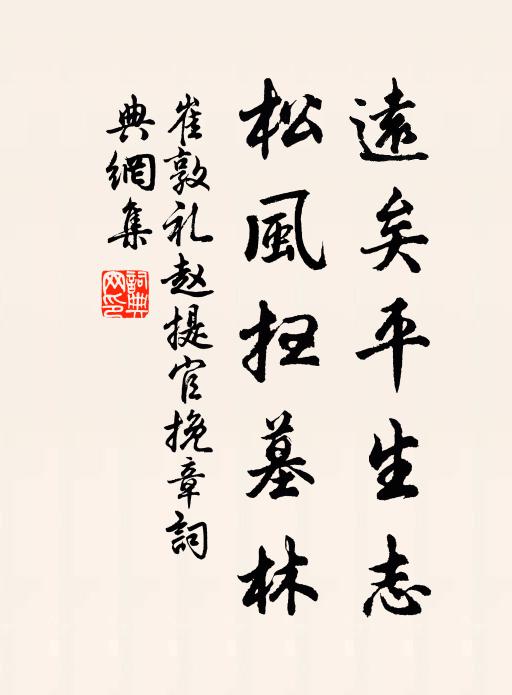 遠矣平生志
松風扫墓林
崔敦礼赵提官挽章詞
典網集
詞典
网印